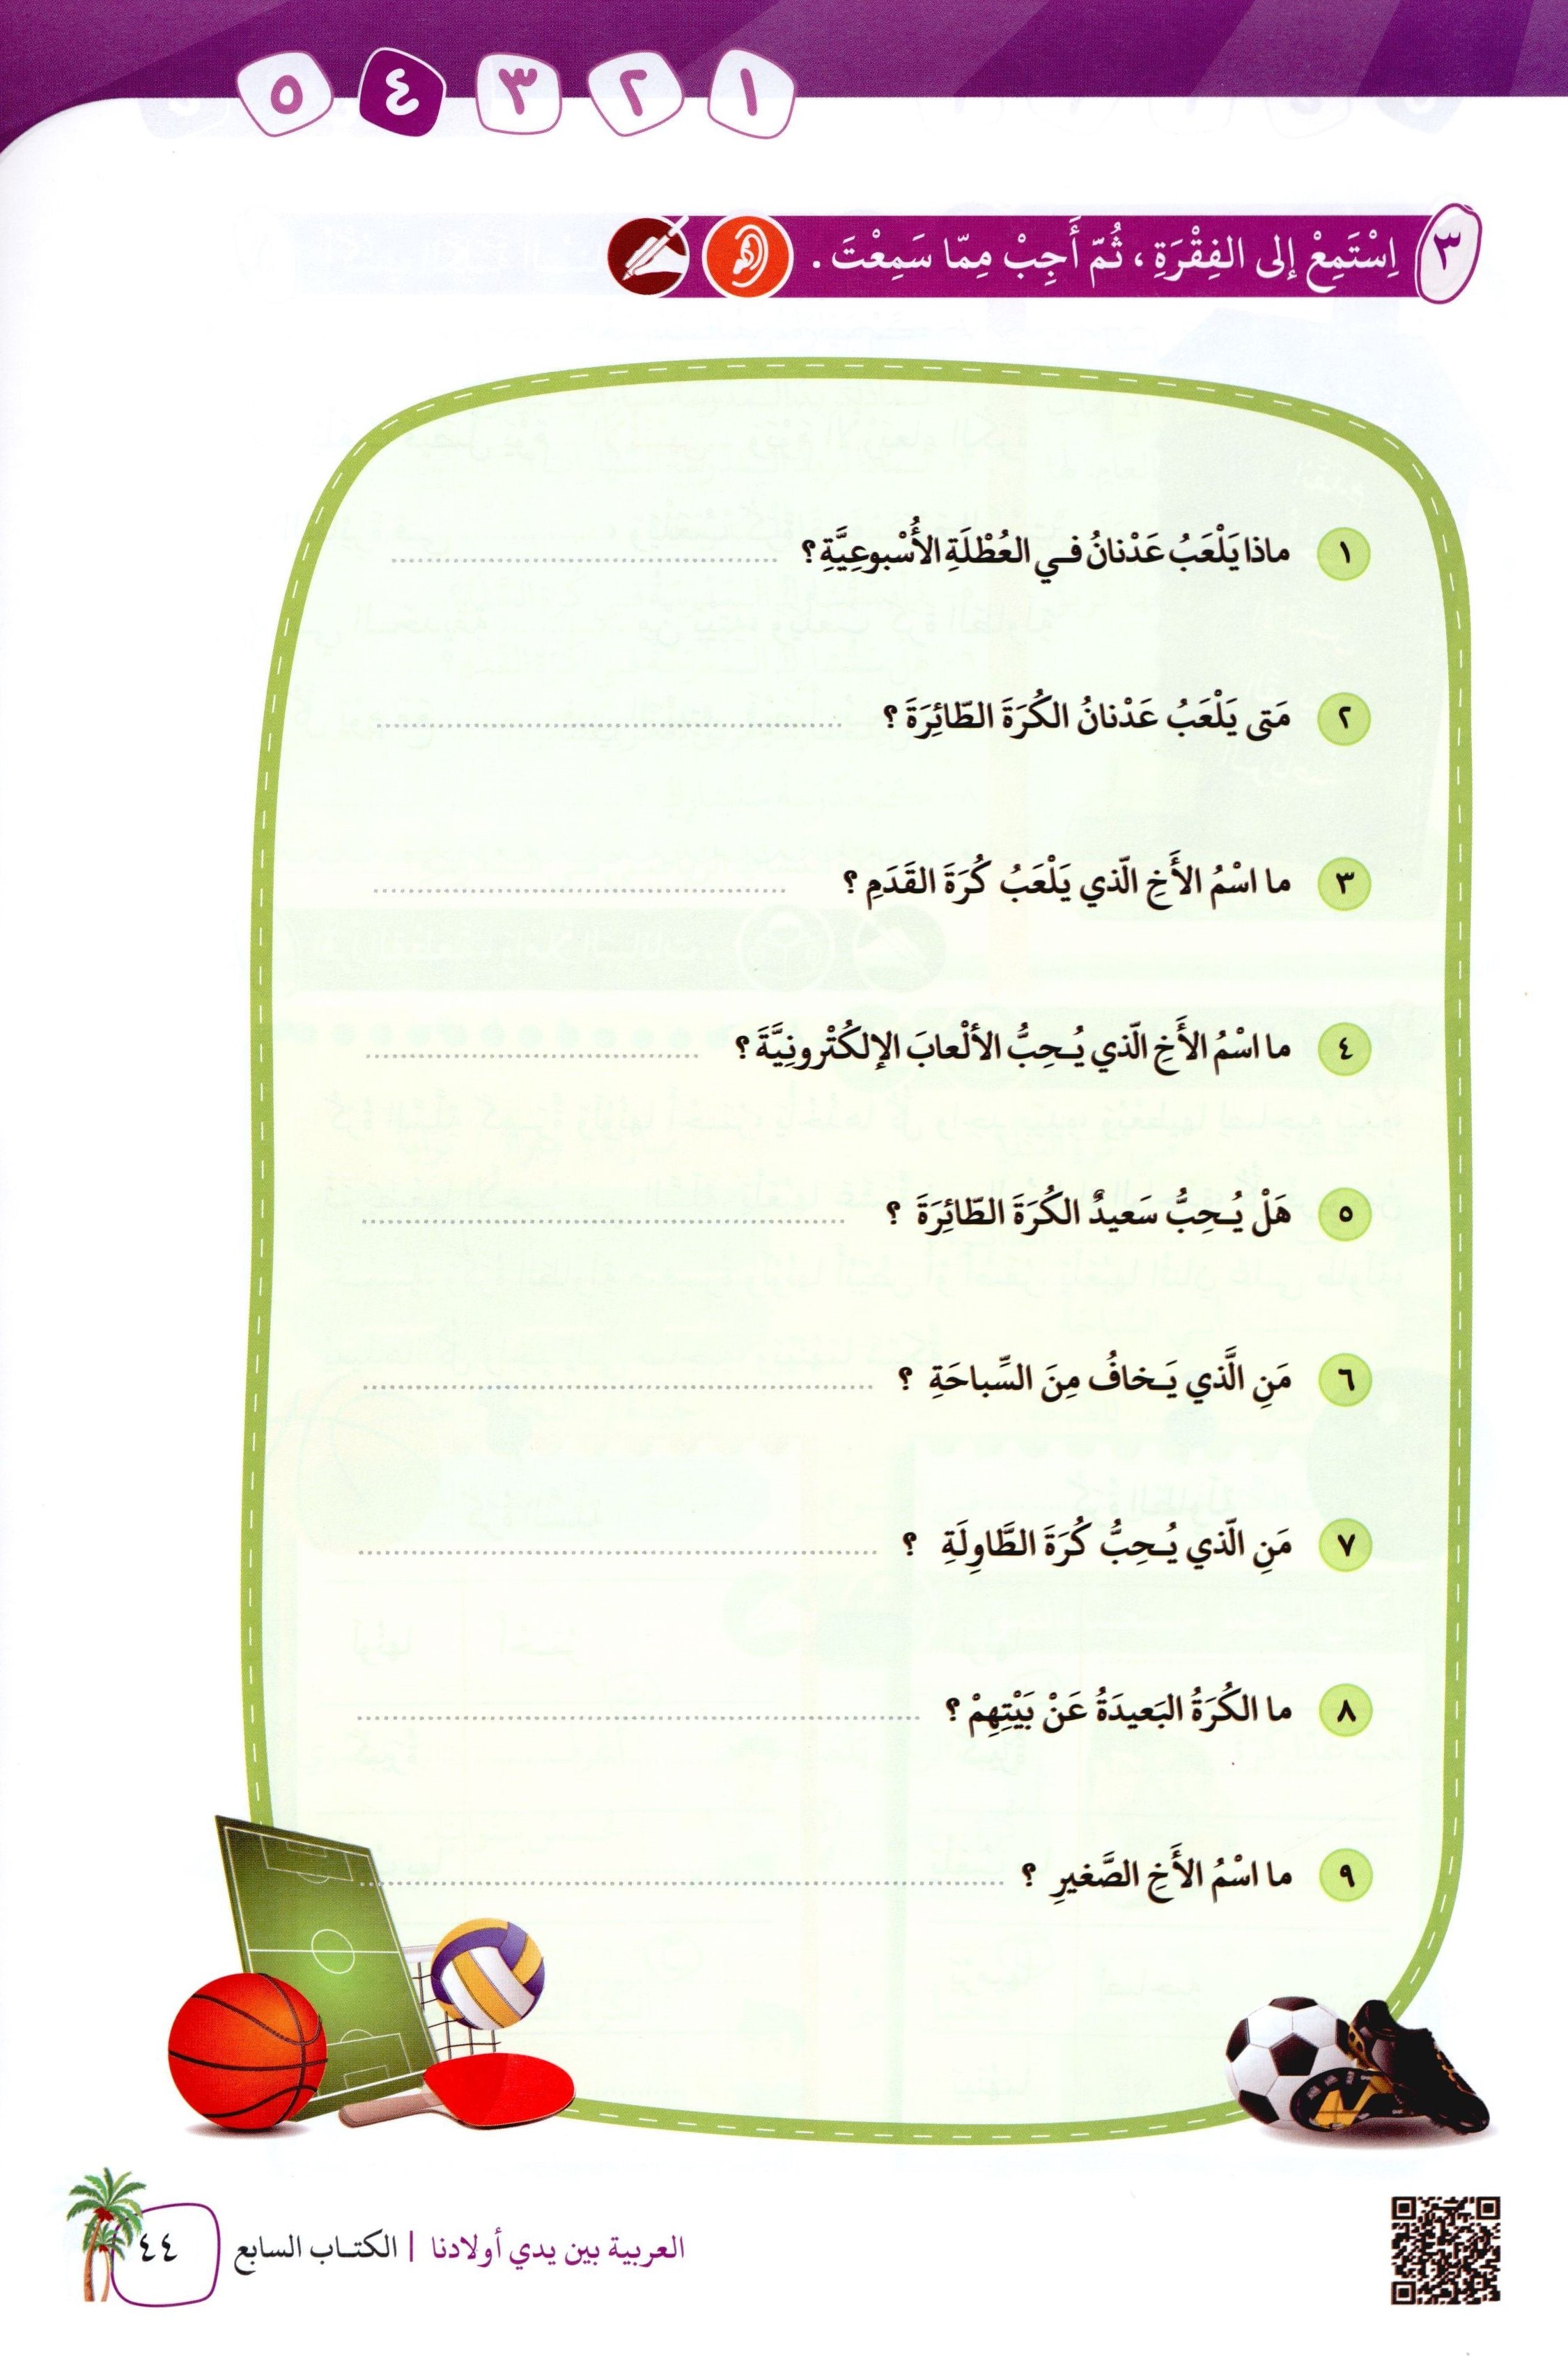 ١ ٢ ٣ ٤ ٥
٣ اِسْتَمِعْ إلى الفِقْرَةِ ، ثُمّ أَجِبْ مِمّا سَمِعْتَ .
١ ماذا يَلْعَبُ عَدْنانُ فـي العُطْلَةِ الأُسْبوعِيَّةِ ؟ ................................
٢ مَتى يَلْعَبُ عَدْنانُ الكُرَةَ الطّائِرَةَ ؟ ................................
٣ ما اسْمُ الأَخِ الّذي يَلْعَبُ كُرَةَ القَدَمِ ؟ ................................
٤ ما اسْمُ الأَخِ الّذي يُـحِبُّ الألْعابَ الإلكُتْرونِيَّةَ ؟ ................................
٥ هَلْ يُـحِبُّ سَعيدٌ الكُرَةَ الطّائِرَةَ ؟ ................................
٦ مَنِ الَّذي يَـخافُ مِنَ السِّباحَةِ ؟ ................................
٧ مَنِ الّذي يُـحِبُّ كُرَةَ الطَّاوِلَةِ ؟ ................................
٨ ما الكُرَةُ البَعيدَةُ عَنْ بَيْتِهِمْ ؟ ................................
٩ ما اسْمُ الأَخِ الصَّغيرِ ؟ ................................
العربية بين يدي أولادنا | الكتـاب السابع ٤٤